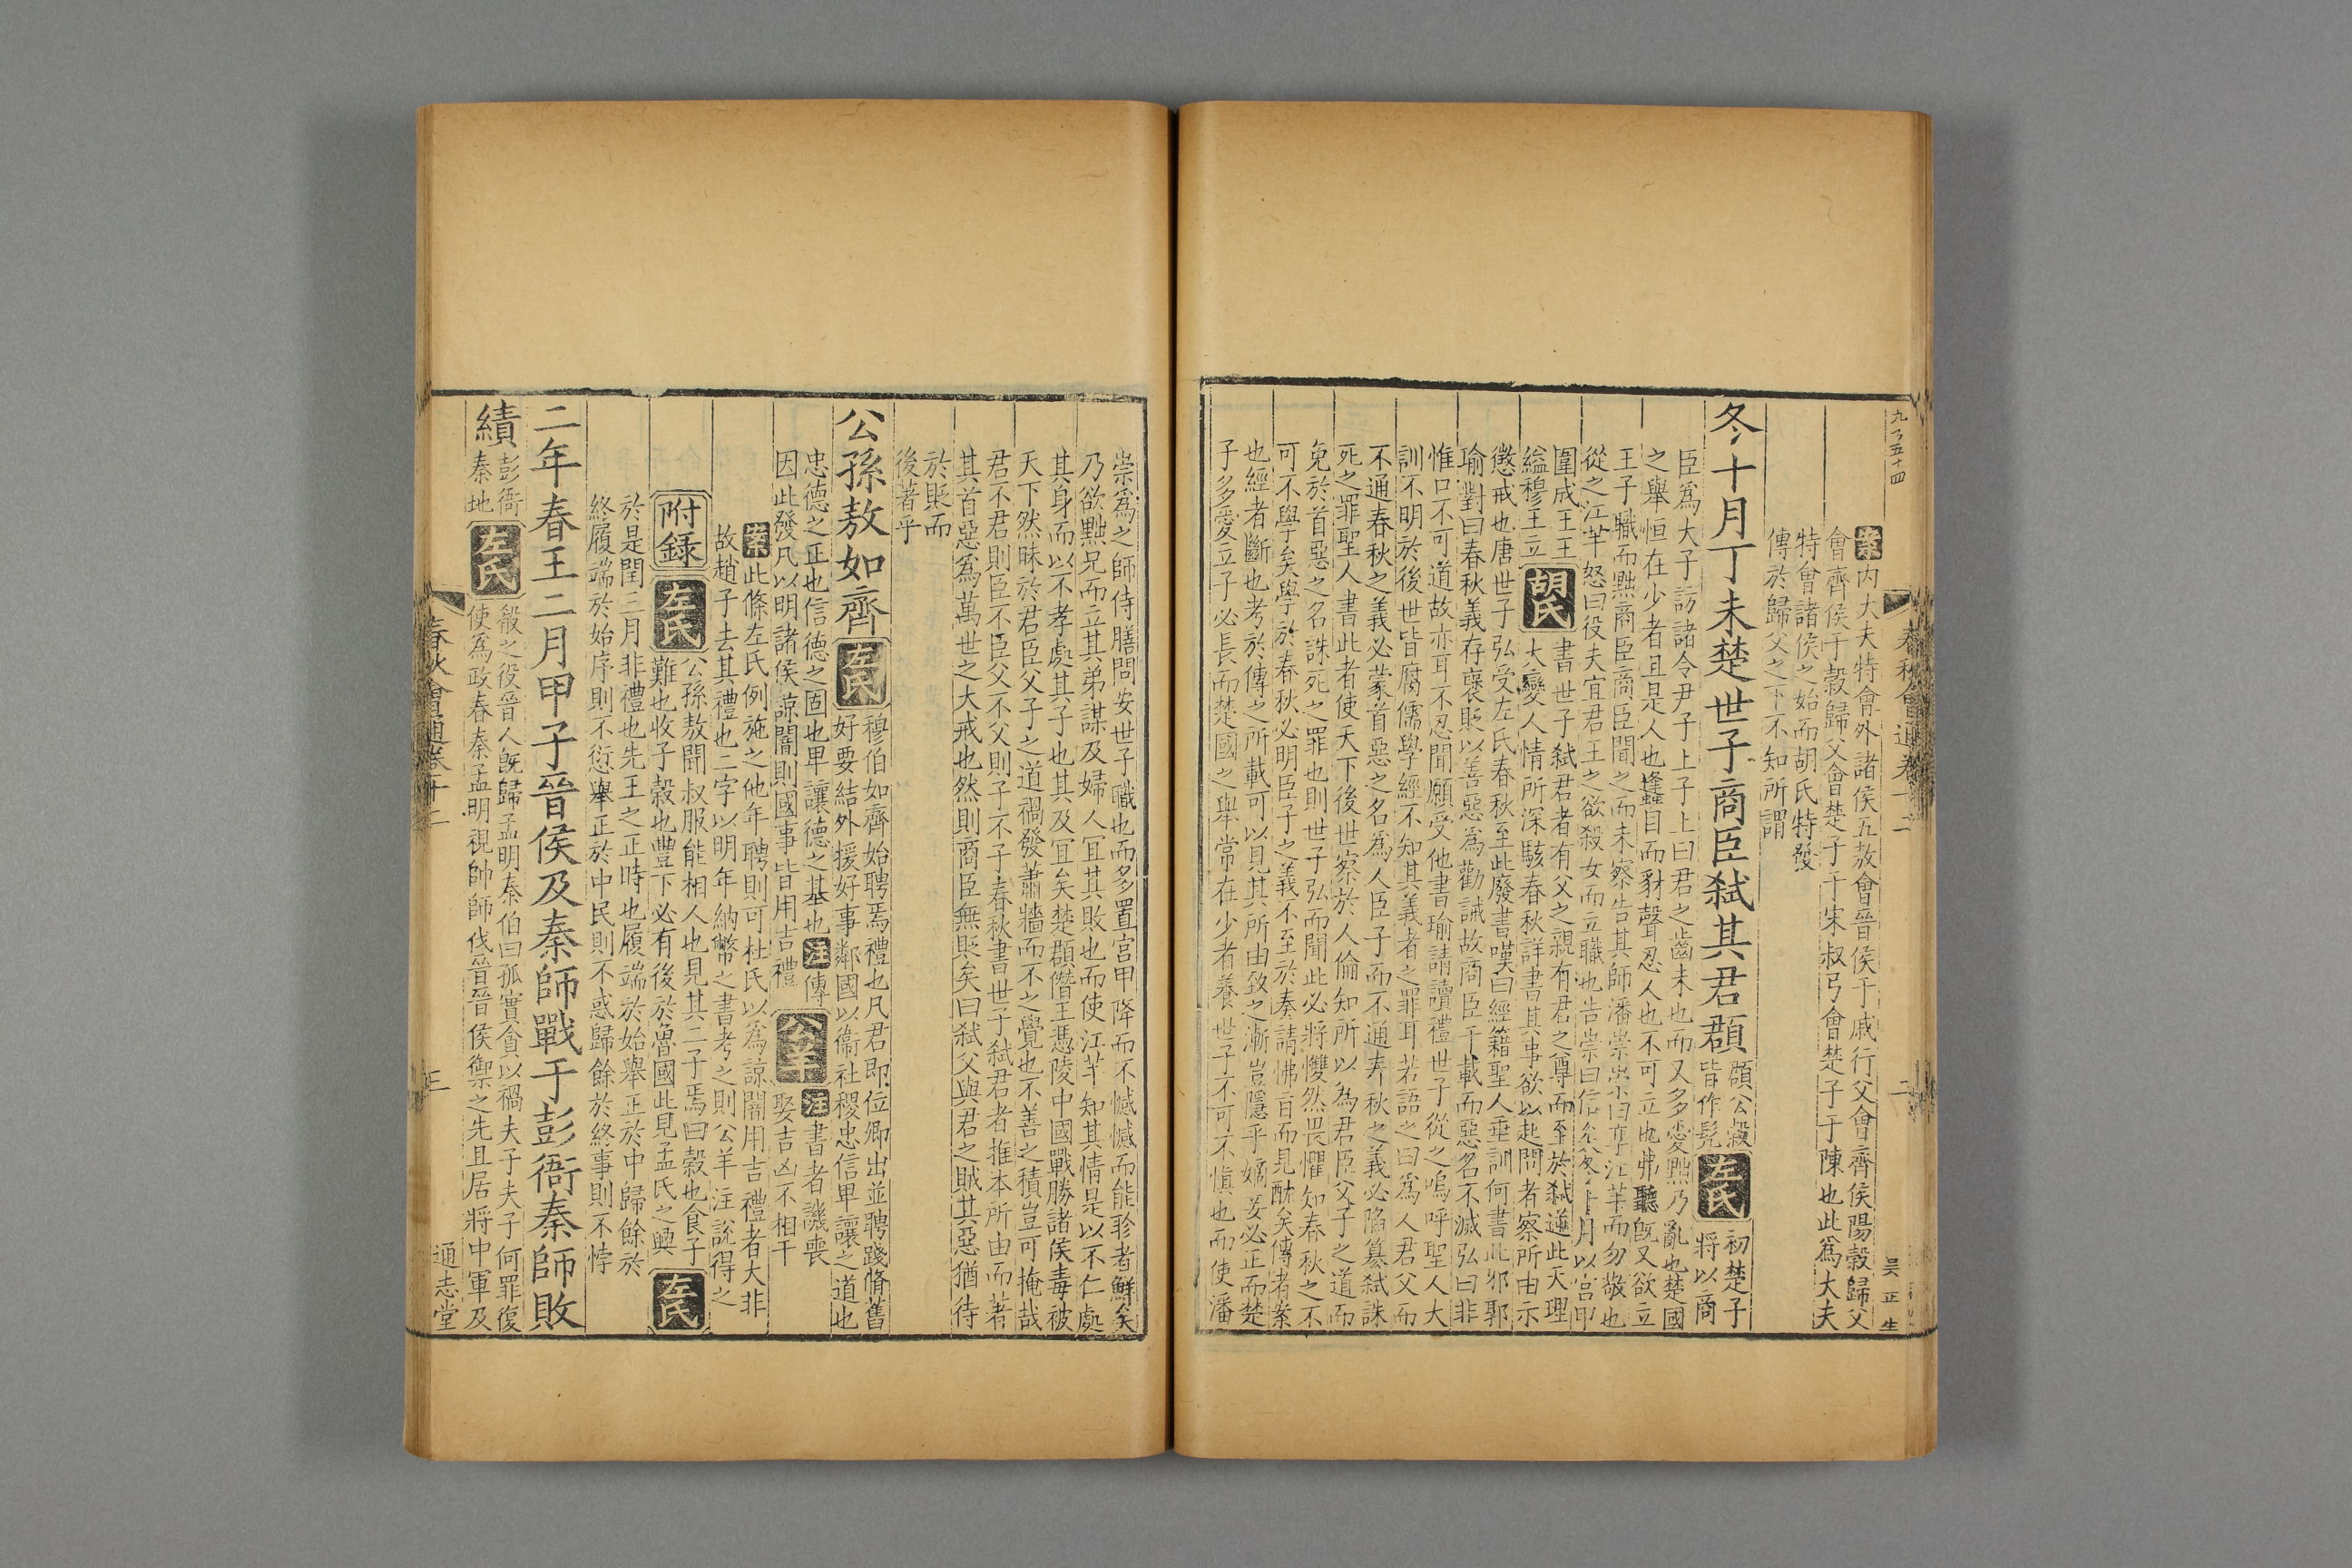 九百五十四
春秋會通卷十二
二
吴正生
案内大夫特會外諸侯五敖會晉侯于戚行父會齊侯陽穀歸父
會齊侯于穀歸父會楚子于宋叔弓會楚子于陳也此爲大夫
特會諸侯之始而胡氏特發
傳於歸父之下不知所謂
冬十月丁未楚世子商臣弒其君頵
頵公穀
皆作髠
左氏
初楚子
將以商
臣爲大子訪諸令尹子上子上曰君之齒未也而又多愛黜乃亂也楚國
之舉恒在少者且是人也蠭目而豺聲忍人也不可立也弗聽旣又欲立
王子職而黜商臣商臣聞之而未察告其師潘崇
江芈而勿敬也
從之江芈怒曰役夫宜君王之欲殺女而立職也告崇曰信矣冬十月以宮甲
圍成王王
縊穆王立
胡氏
書世子弒君者有父之親有君之尊而至於弒逆此天理
大變人情所深駭春秋詳書其事欲以起問者察所由示
懲戒也唐世子弘受左氏春秋至此廢書嘆曰經籍聖人垂訓何書此邪郭
瑜對曰春秋義存襃貶以善惡爲勸誡故商臣千載而惡名不滅弘曰非
惟口不可道故亦耳不忍聞願受他書瑜請讀禮世子從之嗚呼聖人大
訓不明於後世皆腐儒學經不知其義者之罪耳若語之曰爲人君父而
不通春秋之義必蒙首惡之名爲人臣子而不通春秋之義必陷篡弒誅
死之罪聖人書此者使天下後世察於人倫知所以為君臣父子之道而
免於首惡之名誅死之罪也則世子弘而聞此必將戄然畏懼知春秋之不
可不學矣學於春秋必明臣子之義不至於奏請怫旨而見酖矣傳者案
也經者斷也考於傳之所載可以見其所由致之漸豈隱乎嫡妾必正而楚
子多愛立子必長而楚國之舉常在少者養世子不可不愼也而使潘
崇爲之師侍膳問安世子職也而多置宫甲降而不憾憾而能眕者鮮矣
乃欲黜兄而立其弟謀及婦人宜其敗也而使江芈知其情是以不仁處
其身而以不孝處其子也其及宜矣楚頵僭王憑陵中國戰勝諸侯毒被
天下然昧於君臣父子之道禍發蕭牆而不之覺也不善之積豈可掩哉
君不君則臣不臣父不父則子不子春秋書世子弒君者推本所由而著
其首惡爲萬世之大戒也然則商臣無貶矣曰弒父與君之賊其惡猶待
於貶而
後著乎
公孫敖如齊
左氏
穆伯如齊始聘焉禮也凡君即位卿出並聘踐脩舊
好要結外援好事鄰國以衞社稷忠信卑讓之道也
忠德之正也信德之固也卑讓德之基也注傳
因此發凡以明諸侯諒闇則國事皆用吉禮
公羊
注書者譏喪
娶吉凶不相干
案此條左氏例施之他年聘則可杜氏以爲諒闇用吉禮者大非
故趙子去其禮也二字以明年納幣之書考之則公羊注說得之
附録
左氏
公孫敖聞叔服能相人也見其二子焉曰穀也食子
難也收子穀也豐下必有後於魯國此見孟氏之興
左氏
於是閏三月非禮也先王之正時也履端於始舉正於中歸餘於
終履端於始序則不愆舉正於中民則不惑歸餘於終事則不悖
二年春王二月甲子晉侯及秦師戰于彭衙秦師敗
績
彭衙
秦地
左氏
殽之役晉人旣歸孟明秦伯曰孤實貪以禍夫子夫子何罪復
使爲政春秦孟明視帥師伐晉晉侯禦之先且居將中軍及
春秋會通卷十二
三
通志堂